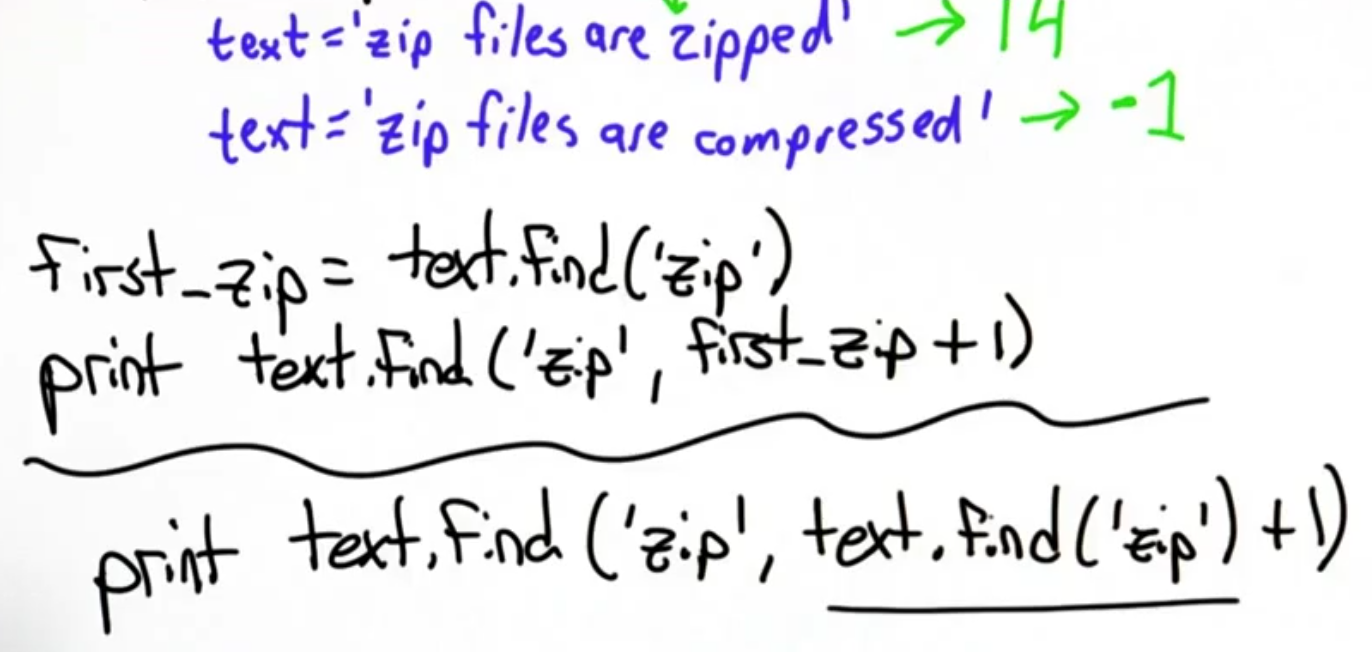 text='zip files are zipped' → 14
text='zip files are compressed' → -1
first_zip = text.find('zip')
print text.find('zip', first_zip + 1)
print text.find('zip', text.find('zip') + 1)